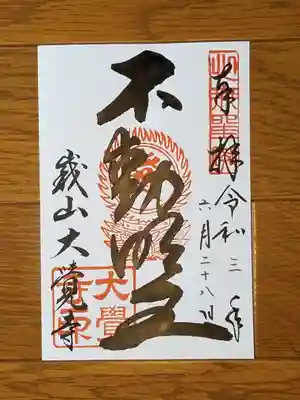 奉拝
令和三年
六月二十八日
不動明王
嵯峨山大覺寺
大覺寺印